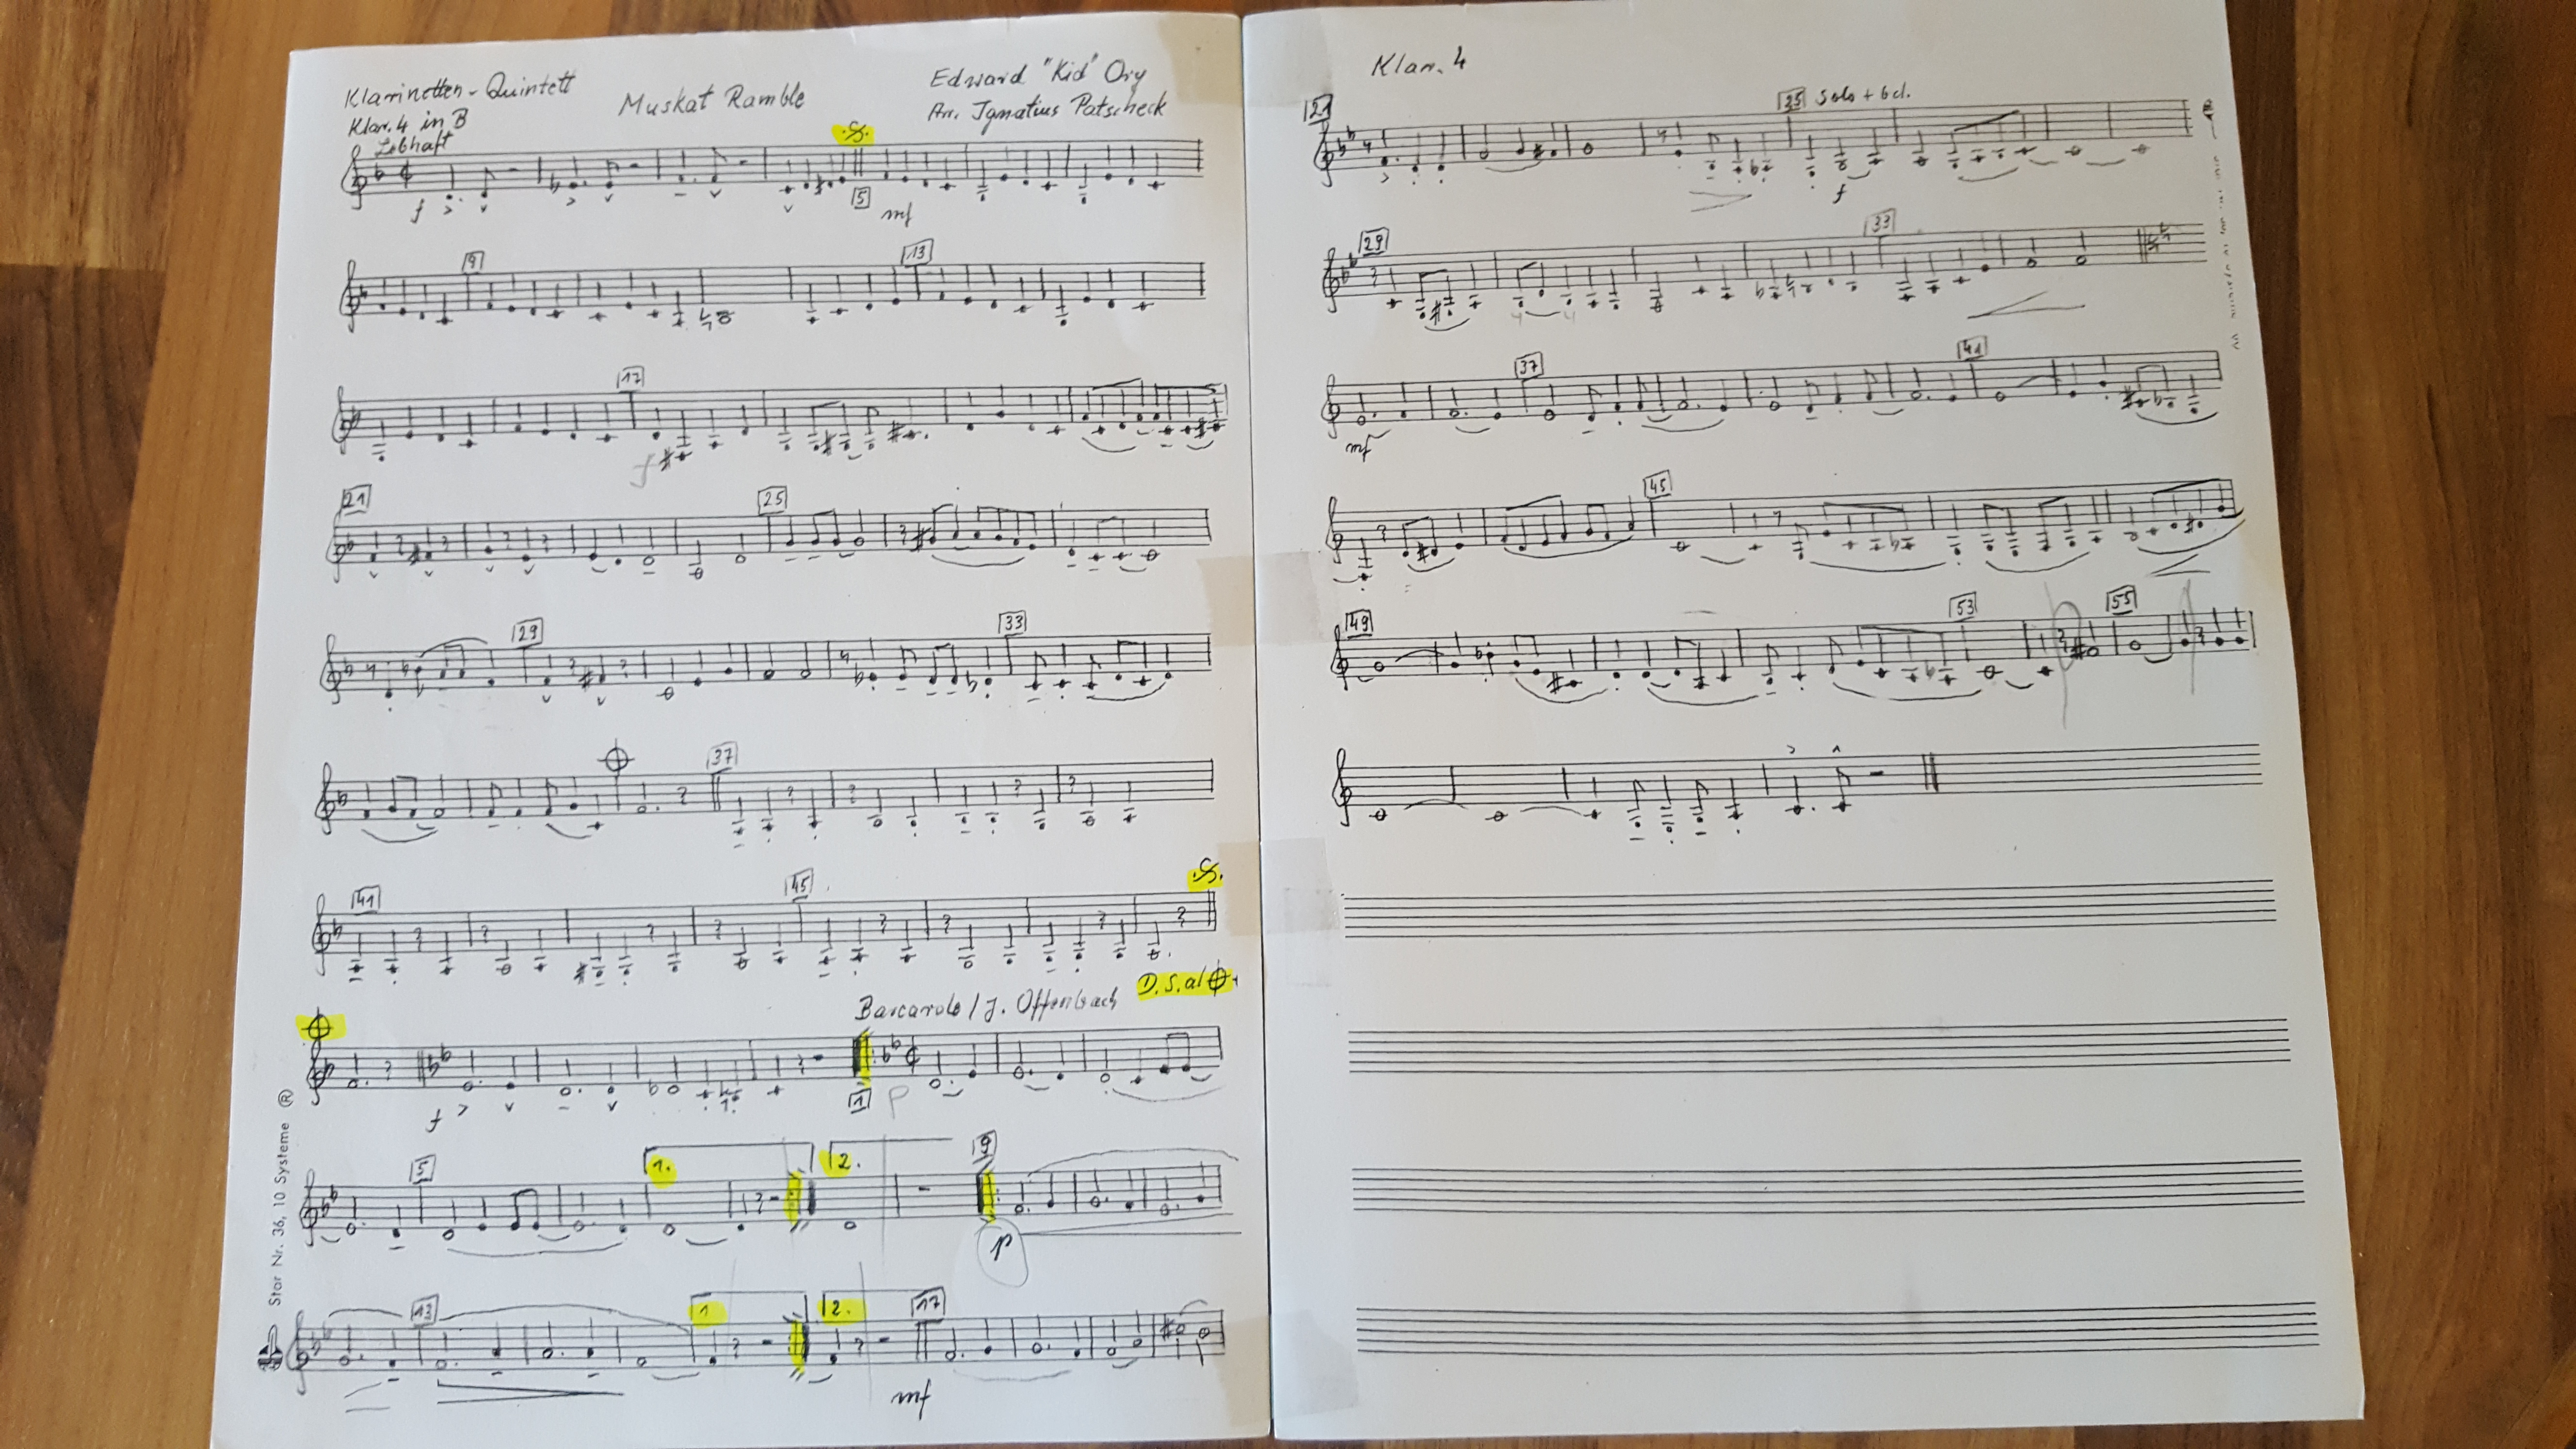 Klarinetten-Quintett
Klar. 4 in B
Muskat Ramble
Edward "Kid" Ory
Arr. Ignatius Patscheck
Lebhaft
f
5
mf
9
13
17
f
21
25
29
33
37
41
45
D.S. al
Barcarole / J. Offenbach
f
1
p
5
1.
2.
9
p
13
1
2.
17
mf
Star Nr. 36, 10 Systeme ®
Klar. 4
21
25 Solo + bcl.
f
29
33
mf
37
41
45
49
53
55